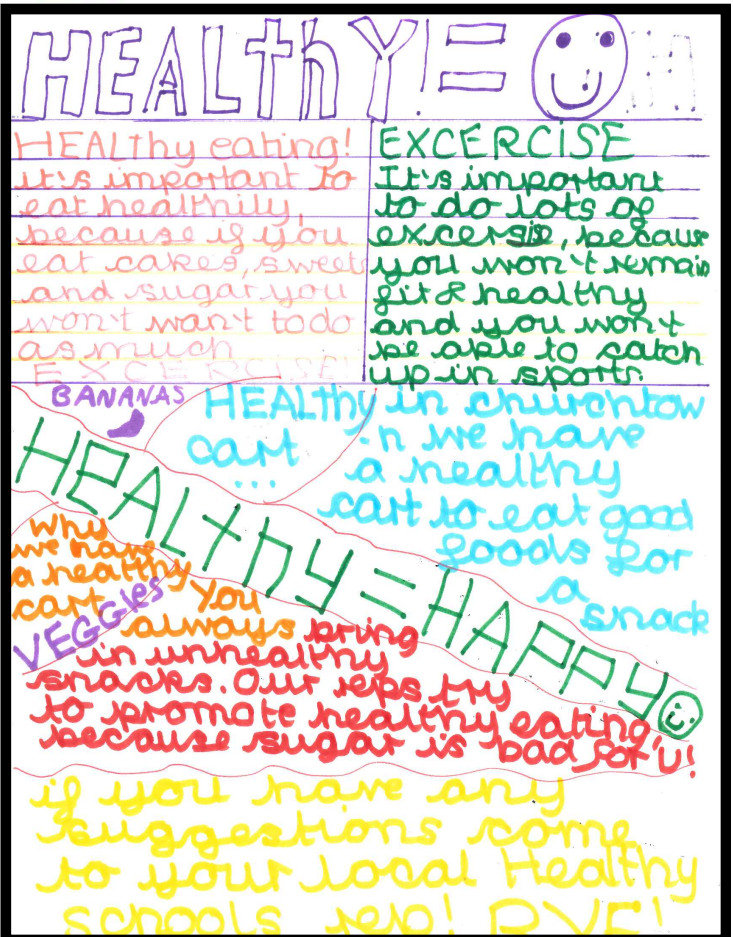 HEALthY! =
HEALthy eating!
it's important to
eat healthily,
because if you
eat cakes, sweets
and sugar you
won't want to do
as much
EXCERCISE!
EXCERCISE
It's important
to do lots of
excersie, because
you won't remain
fit & healthy
and you won't
be able to catch
up in sports.
BANANAS
HEALthy
cart
...
in churchtow
n we have
a healthy
cart to eat good
foods for
a
snack
HEALthy = HAPPY
Why
we have
a healthy
cart
VEGGIES
You
always bring
in unhealthy
snacks. Our reps try
to promote healthy eating,
because sugar is bad for u!
if you have any
suggestions come
to your local Healthy
schools rep!